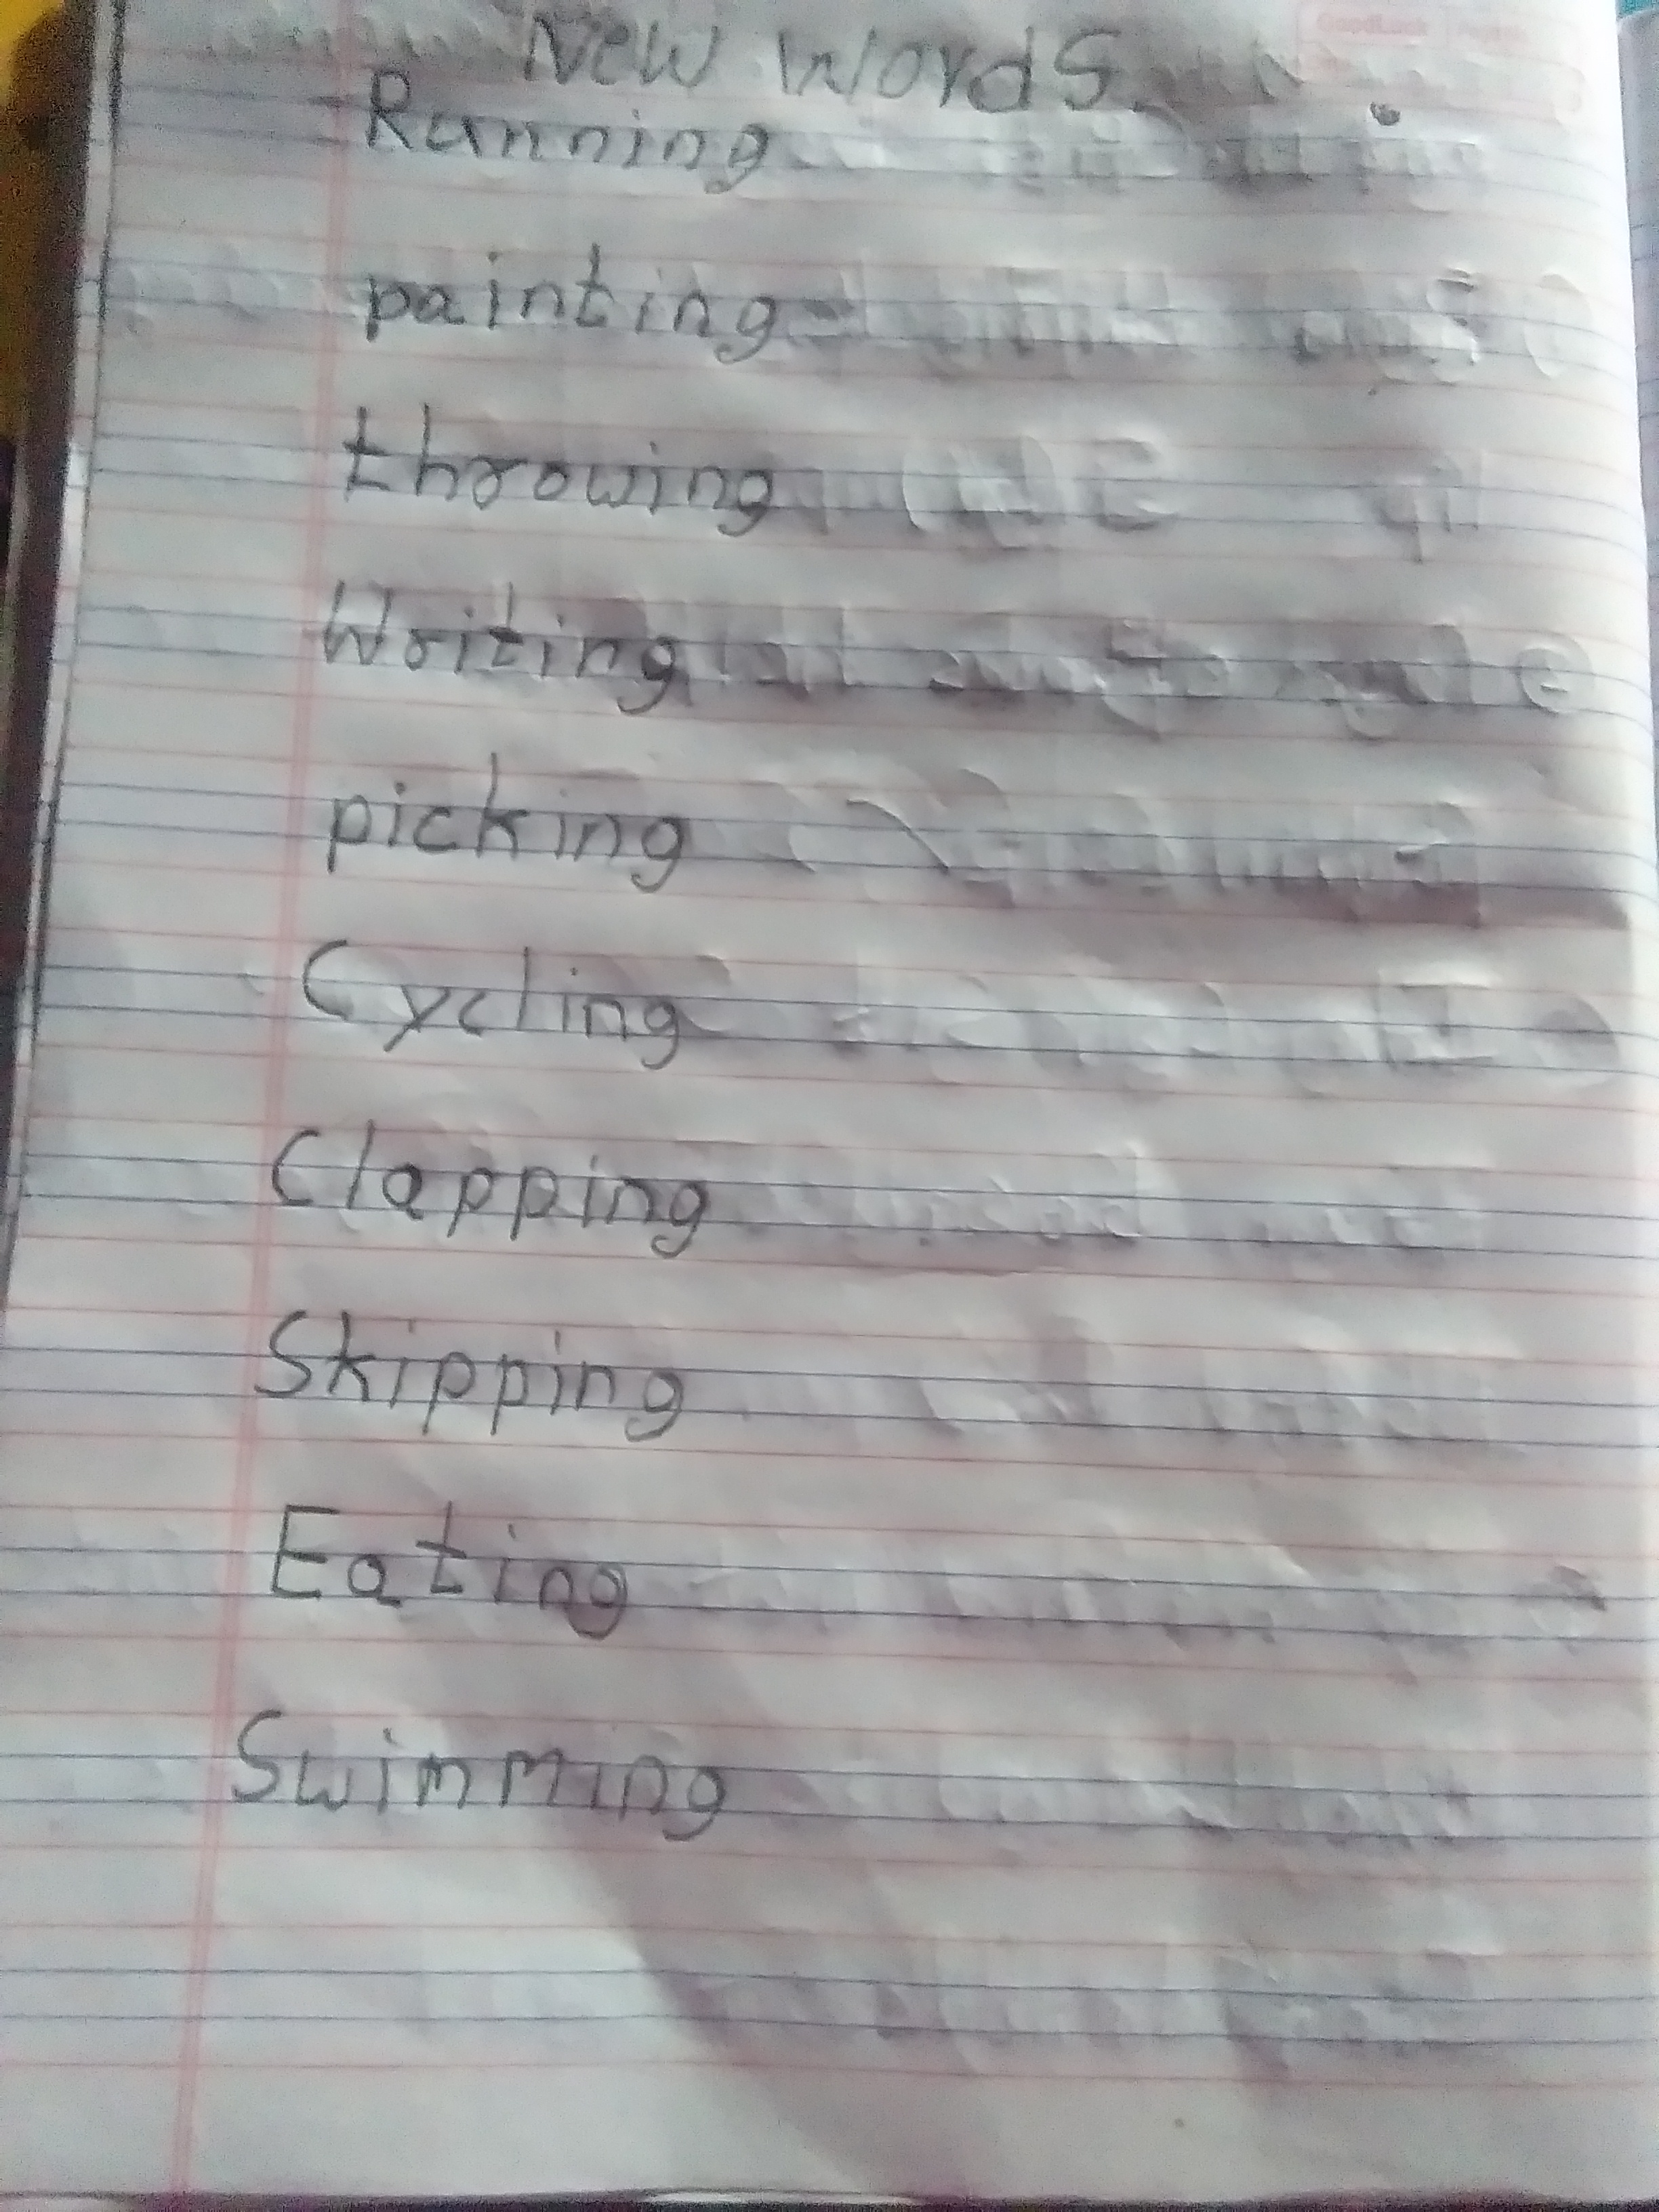 New Words.
Running
painting
throwing
Writing
picking
Cycling
Clapping
Skipping
Eating
Swimming